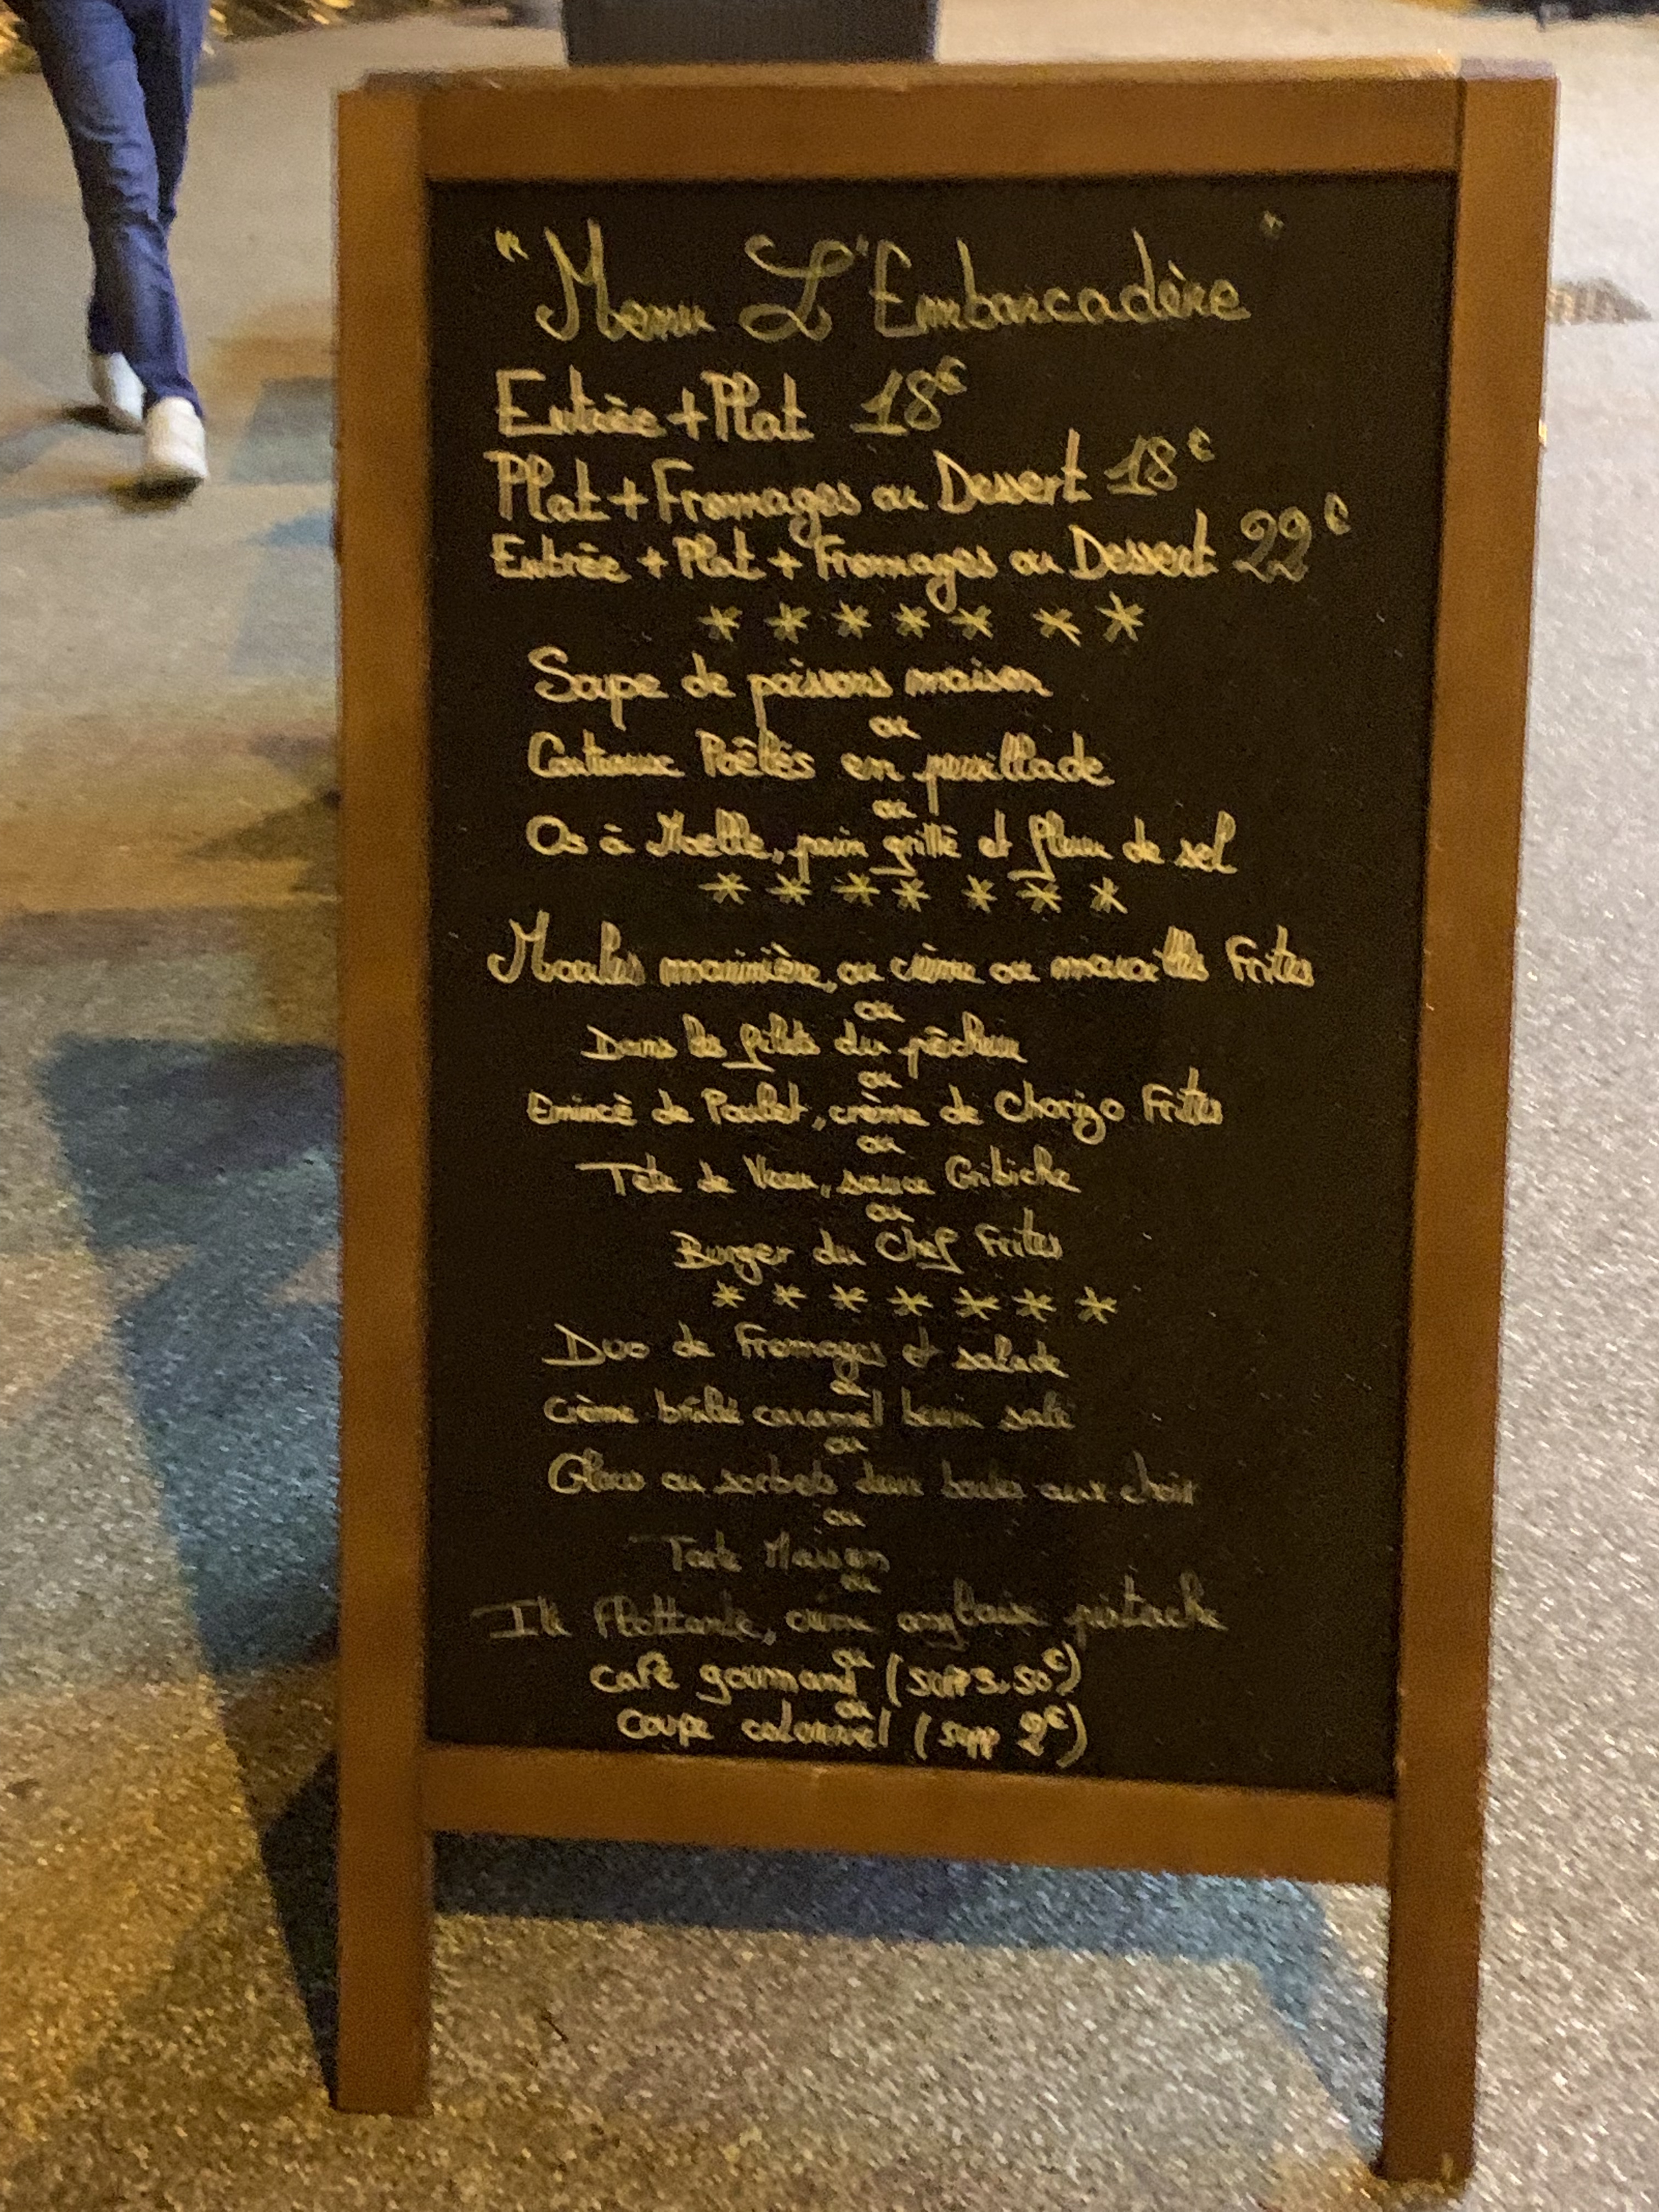 "Menu L'Embarcadère"
Entrée + Plat 18€
Plat + Fromages ou Dessert 18€
Entrée + Plat + Fromages ou Dessert 22€
* * * * * * *
Soupe de poissons maison
ou
Couteaux Poêlés en persillade
ou
Os à Moelle, pain grillé et fleur de sel
* * * * * * *
Moules marinière, ou crème ou maroilles Frites
ou
Dans les filets du pêcheur
ou
Emincé de Poulet, crème de Chorizo Frites
ou
Tete de Veau, sauce Gribiche
ou
Burger du Chef Frites
* * * * * * *
Duo de Fromages et salade
ou
Crème brûlée caramel beurre salé
ou
Glaces ou sorbets deux boules aux choix
ou
Tarte Maison
ou
Ile Flottante, crème anglaise pistache
ou
Café gourmand (supp 3.50€)
ou
Coupe colonnel (supp 2€)